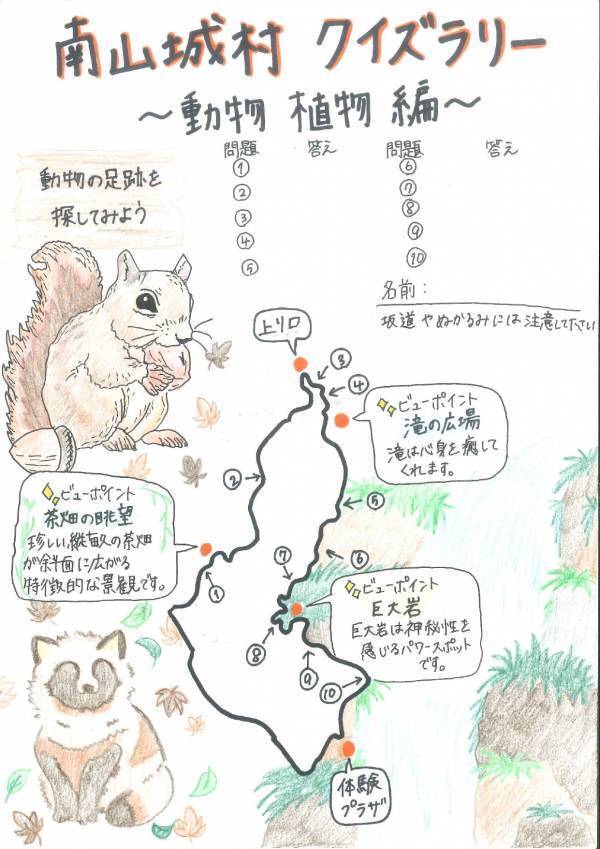 南山城村 クイズラリー
～動物 植物 編～
動物の足跡を
探してみよう
問題 答え 問題 答え
① ⑥
② ⑦
③ ⑧
④ ⑨
⑤ ⑩
名前:
坂道やぬかるみには注意してください
上り口
③
④
ビューポイント
滝の広場
滝は心身を癒して
くれます。
②
⑤
ビューポイント
茶畑の眺望
珍しい、縦畝の茶畑
が斜面に広がる
特徴的な景観です。
①
⑦
⑥
ビューポイント
巨大岩
巨大岩は神秘性を
感じるパワースポット
です。
⑧
⑨
⑩
体験
プラザ